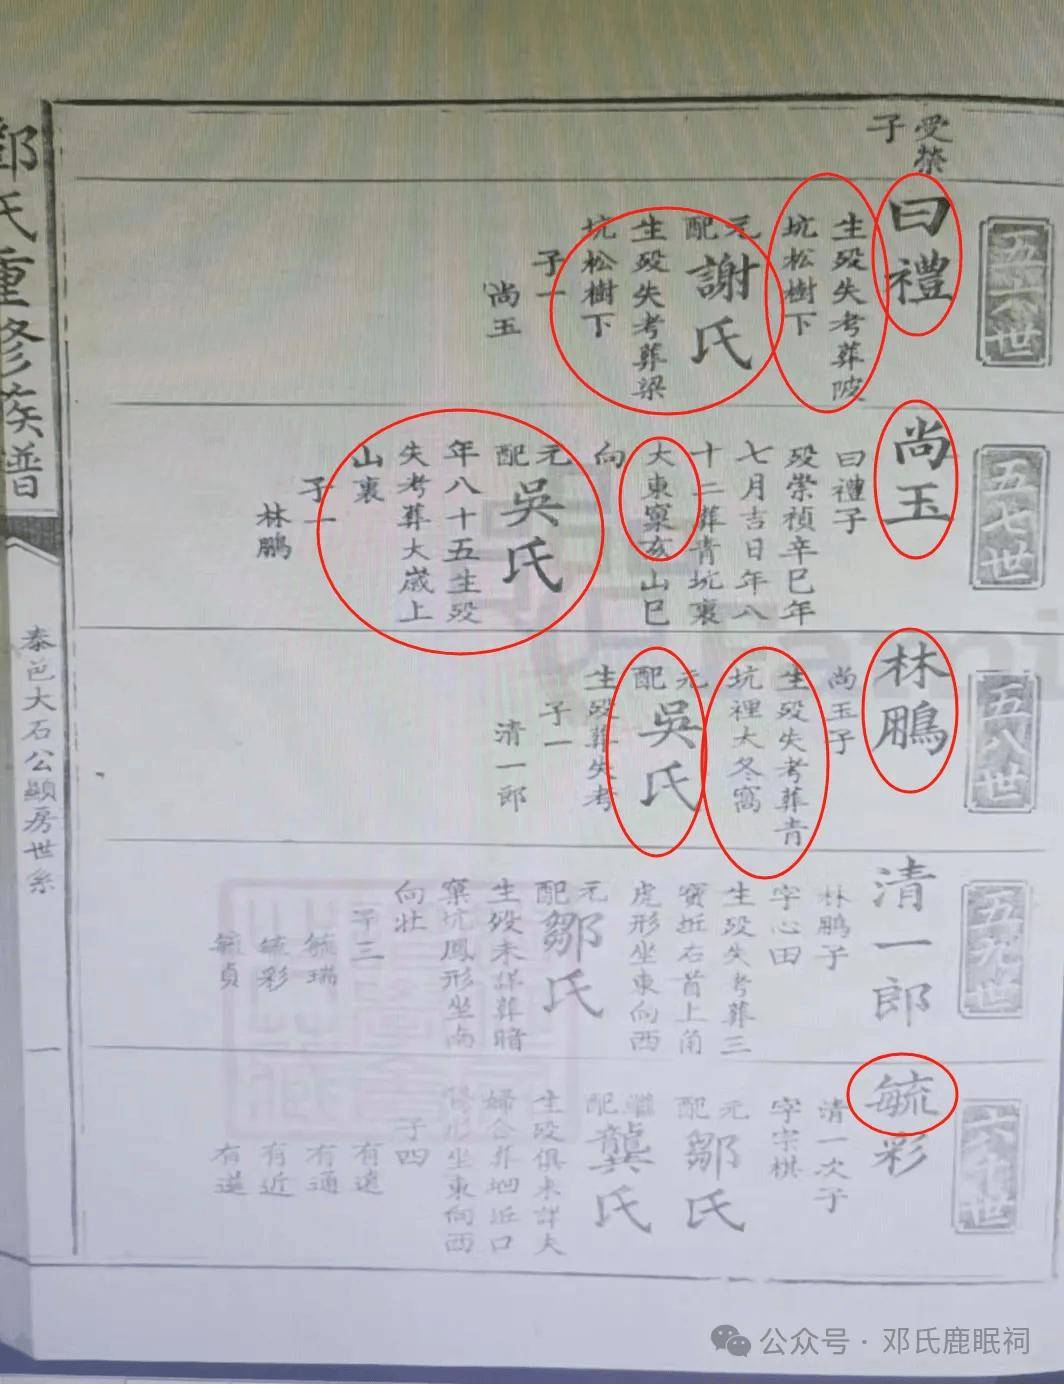 鄧氏重修族譜
泰邑大石公顯房世系
一
受榮
子
五六世
曰禮
生歿失考葬陂
坑松樹下
元
配
謝氏
生歿失考葬梁
坑松樹下
子一
尚玉
五七世
尚玉
曰禮子
歿崇禎辛巳年
七月吉日年八
十二葬青坑裏
大東窠亥山巳
向
元
配
吳氏
年八十五生歿
失考葬大嵗上
山裏
子一
林鵬
五八世
林鵬
尚玉子
生歿失考葬青
坑裡大冬窩
元
配
吳氏
生歿葬失考
子一
清一郎
五九世
清一郎
林鵬子
字心田
生歿失考葬三
寶坵右首上角
虎形坐東向西
元
配
鄒氏
生歿未詳葬暗
窠坑鳳形坐南
向壯
子三
毓瑞
毓彩
毓貞
六十世
毓彩
清一次子
字宗棋
元
配
鄒氏
繼
配
龔氏
生歿俱未詳夫
婦合葬坳近口
形坐東向西
子四
有遠
有通
有近
有道
公众号·邓氏鹿眠祠